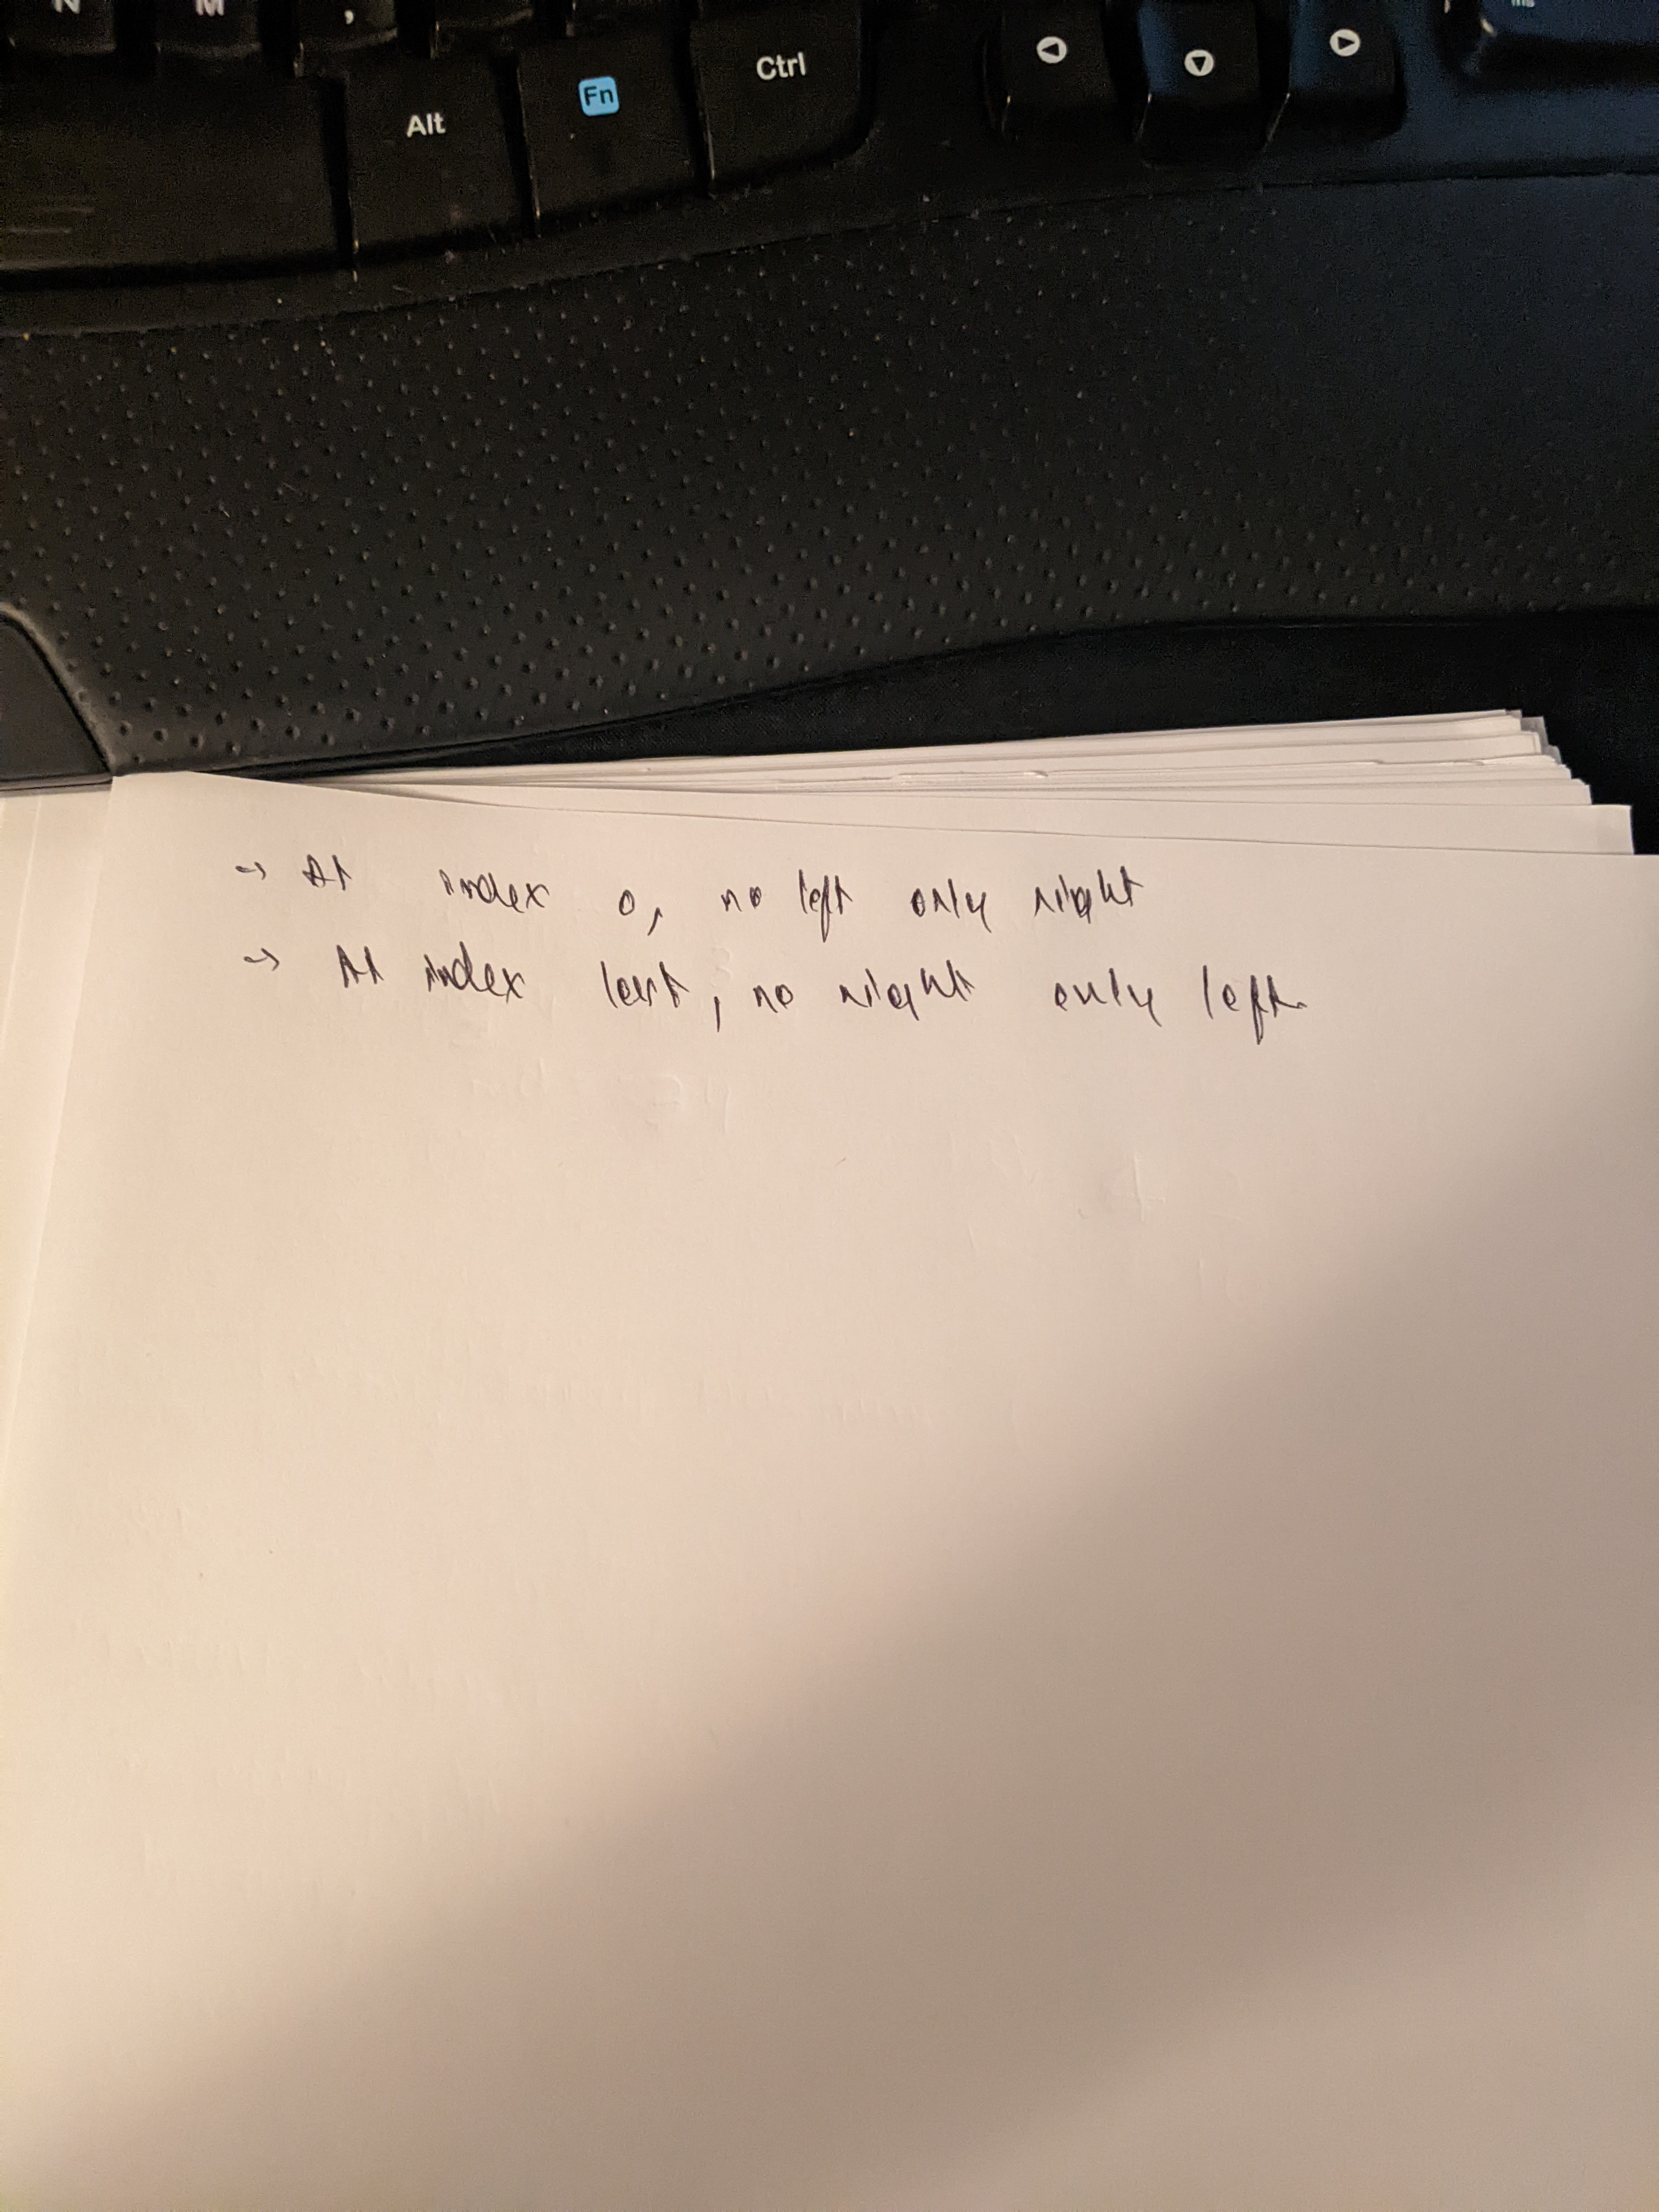 N M ,
Alt Fn Ctrl
Ins
-> At index 0, no left only right
-> At index last, no right only left